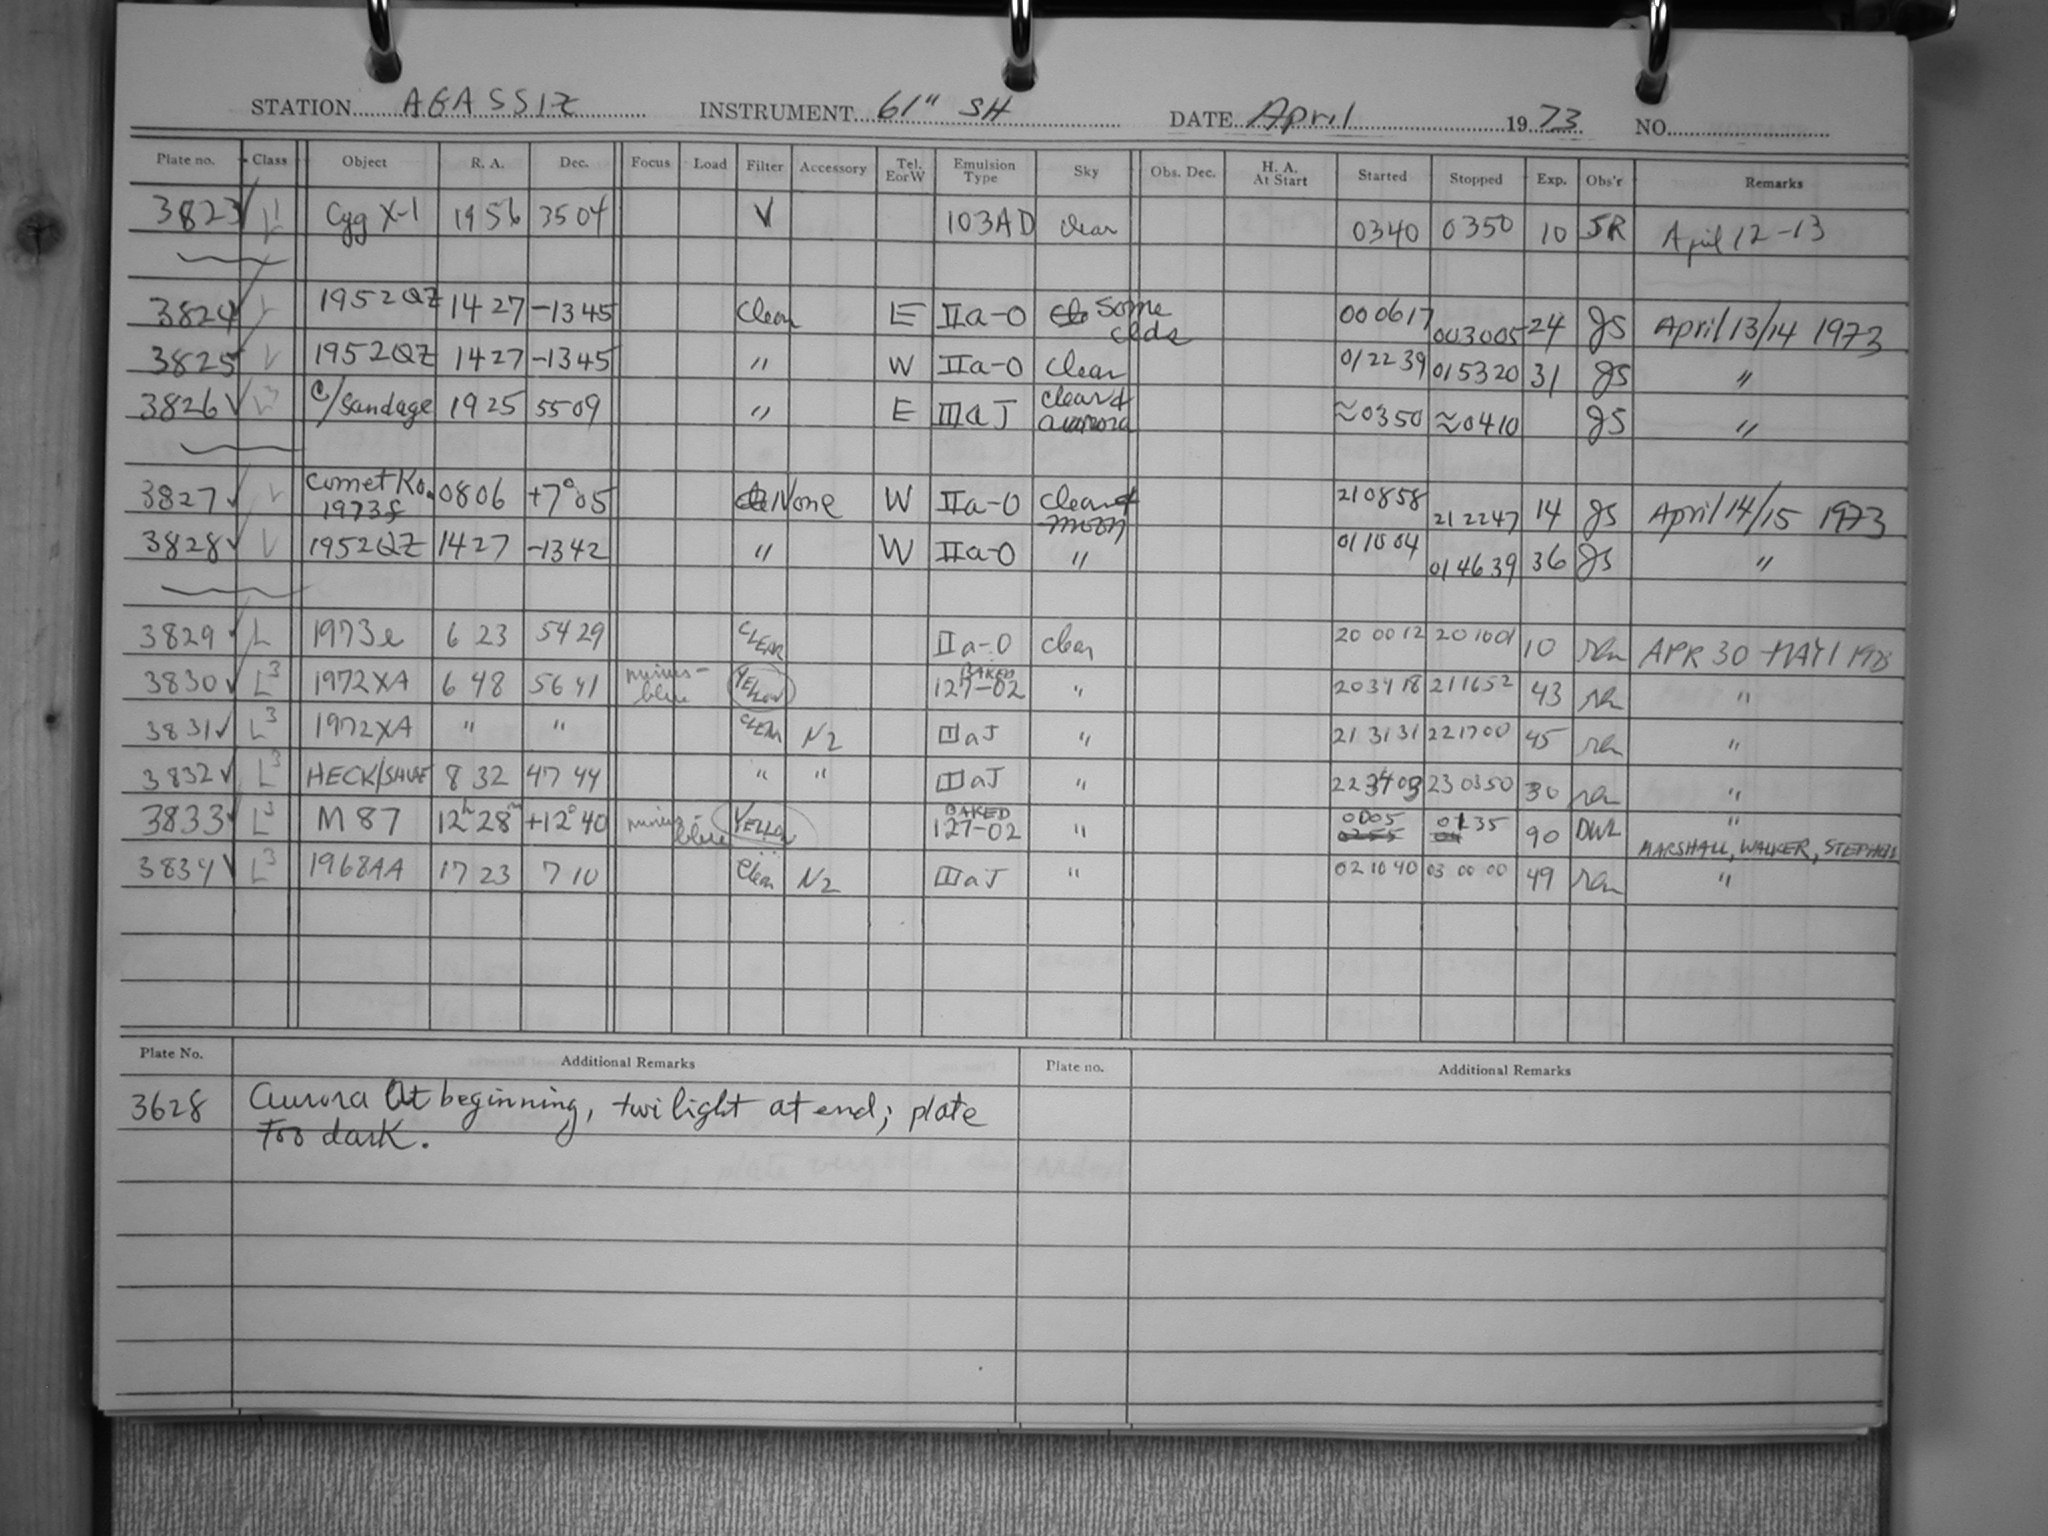 STATION AGASSIZ INSTRUMENT 61" SH DATE April 1973 NO.
Plate no. Class Object R. A. Dec. Focus Load Filter Accessory Tel. EorW Emulsion Type Sky Obs. Dec. H. A. At Start Started Stopped Exp. Obs'r Remarks
3823 Cyg X-1 19 56 35 04 V 103AD clear 0340 0350 10 SR April 12-13
3824 1952QZ 14 27 -13 45 Clear E IIa-O some clds 000617 003005 24 JS April 13/14 1973
3825 1952QZ 14 27 -13 45 " W IIa-O Clear 012239 015320 31 JS "
3826 C/Sandage 19 25 55 09 " E IIIaJ clear & aurora ≈0350 ≈0410 JS "
3827 Comet Ko. 1973f 08 06 +7° 05 None W IIa-O clear & moon 210858 212247 14 JS April 14/15 1973
3828 1952QZ 14 27 -13 42 " W IIa-O " 011004 014639 36 JS "
3829 L 1973e 6 23 54 29 CLEAR IIa-O clear 20 00 12 20 10 01 10 APR 30 - MAY 1 1973
3830 L3 1972XA 6 48 56 41 minus-blue YELLOW BAKED 127-02 " 203418 211652 43 "
3831 L3 1972XA " " CLEAR N2 IIIaJ " 213131 221700 45 "
3832 L3 8 32 47 44 " " IIIaJ " 223403 230350 30 "
3833 L3 M 87 12h 28m +12° 40 minus-blue YELLOW BAKED 127-02 " 0005 0135 90 DWL " MARSHALL, WALKER, STEPHENS
3834 L3 1968AA 17 23 7 10 Clear N2 IIIaJ " 021040 03 00 00 49 "
Plate No. Additional Remarks Plate no. Additional Remarks
3628 Aurora at beginning, twilight at end; plate
too dark.